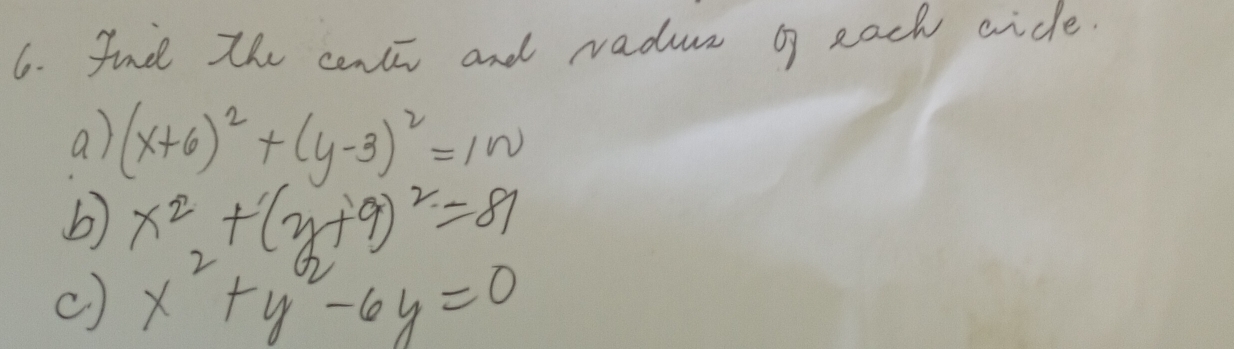 6. Find the center and radius of each circle.
a) (x+6)² + (y-3)² = 100
b) x² + (y+9)² = 81
c) x² + y² - 6y = 0